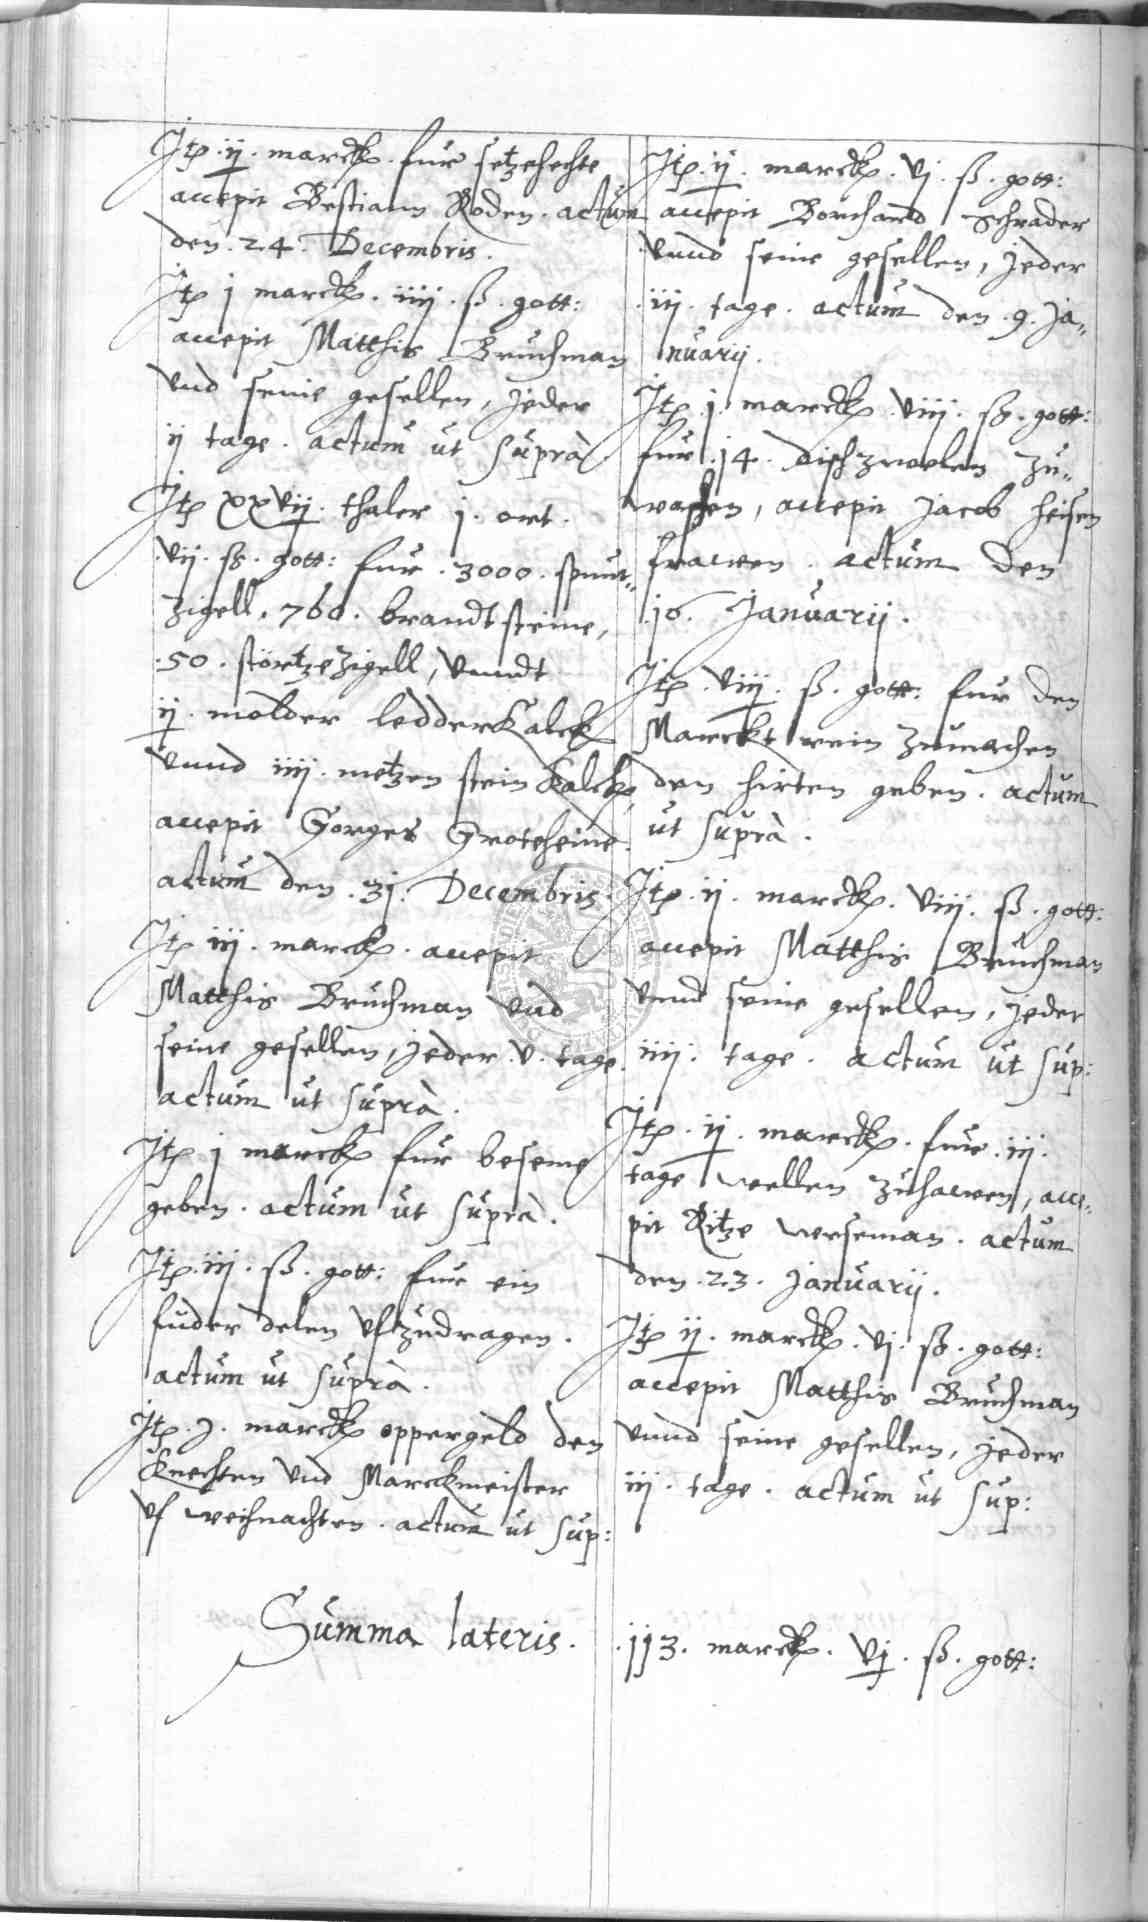 Jtp. ij. marck. fur setzehechte
accepit Bestiann Roden. actum
den. 24. Decembris.
Jtp j marck. iiij. ß. gott:
accepit Matthis Bruchman
vnd seine gesellen, jeder
ij tage. actum ut suprà
Jtp xxvij. thaler j. ort.
vij. ß. gott: fur. 3000. spunt„
zigell. 760. brandtsteine,
.50. störtzezigell, vnndt
ij. molder ledderkalck
vnnd iiij. metzen steinkalck,
accepit Gorges Groteheine.
actum den. 3j. Decembris.
Jtp iij. marck. accepit
Matthis Bruchman vnd
seine gesellen, jeder. v. tage.
actum ut suprà.
Jtp j marck fur beseme
geben. actum ut suprà.
Jtp. iij. ß. gott: fur ein
fuder delen vftzudragen.
actum ut suprà.
Jtp. j. marck oppergeld den
knechten vnd Marckmeister
vf weihnachten. actum ut sup:
Jtp. ij. marck. vj. ß. gott:
accepit Borchard Schrader
vnnd seine gesellen, jeder
.iij. tage. actum den. 9. Ja„
nuarij.
Jtp. j. marck viij. ß. gott:
fur. j4. dischzwelen zu„
waschen, accepit Jacob heisen
frawen. actum den
.j6. Januarij.
Jtp. viij. ß. gott: fur den
Marckt rein zumachen
den hirten geben. actum
ut suprà.
Jtp. ij. marck. viij. ß. gott:
accepit Matthis Bruchman
vnnd seine gesellen, jeder
iiij. tage. actum ut sup:
Jtp. ij. marck. fur. iij.
tage wellen zuhawen, acce„
pit Ritze werseman. actum
den. 23. Januarij.
Jtp ij. marck. vj. ß. gott:
accepit Matthis Bruchman
vnnd seine gesellen, jeder
iij. tage. actum ut sup:
Summa lateris. .jj3. marck. vj. ß. gott: